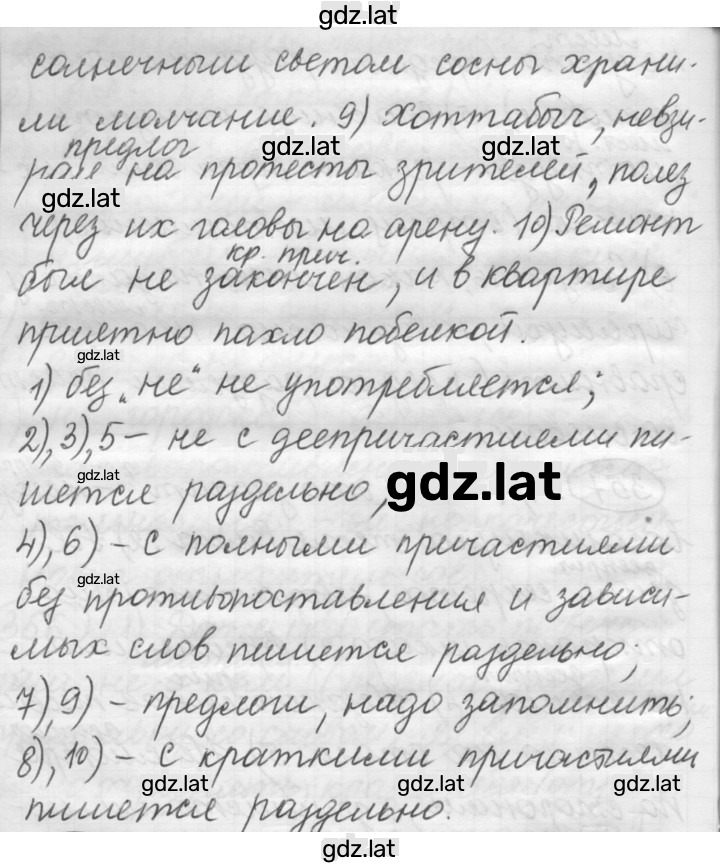 gdz.lat
солнечным светом сосны храни-
ли молчание. 9) Хоттабыч, невзи-
предлог
gdz.lat
gdz.lat
рая на протесты зрителей, полез
gdz.lat
через их головы на арену. 10) Ремонт
кр. прич.
был не закончен, и в квартире
приятно пахло побелкой.
gdz.lat
1) без „не“ не употребляется;
2), 3), 5 – не с деепричастиями пи-
gdz.lat
шется раздельно,
gdz.lat
4), 6) – с полными причастиями
gdz.lat
без противопоставления и зависи-
мых слов пишется раздельно,
7), 9) – предлоги, надо запомнить;
8), 10) – с краткими причастиями
gdz.lat
gdz.lat
gdz.lat
пишется раздельно.
gdz.lat